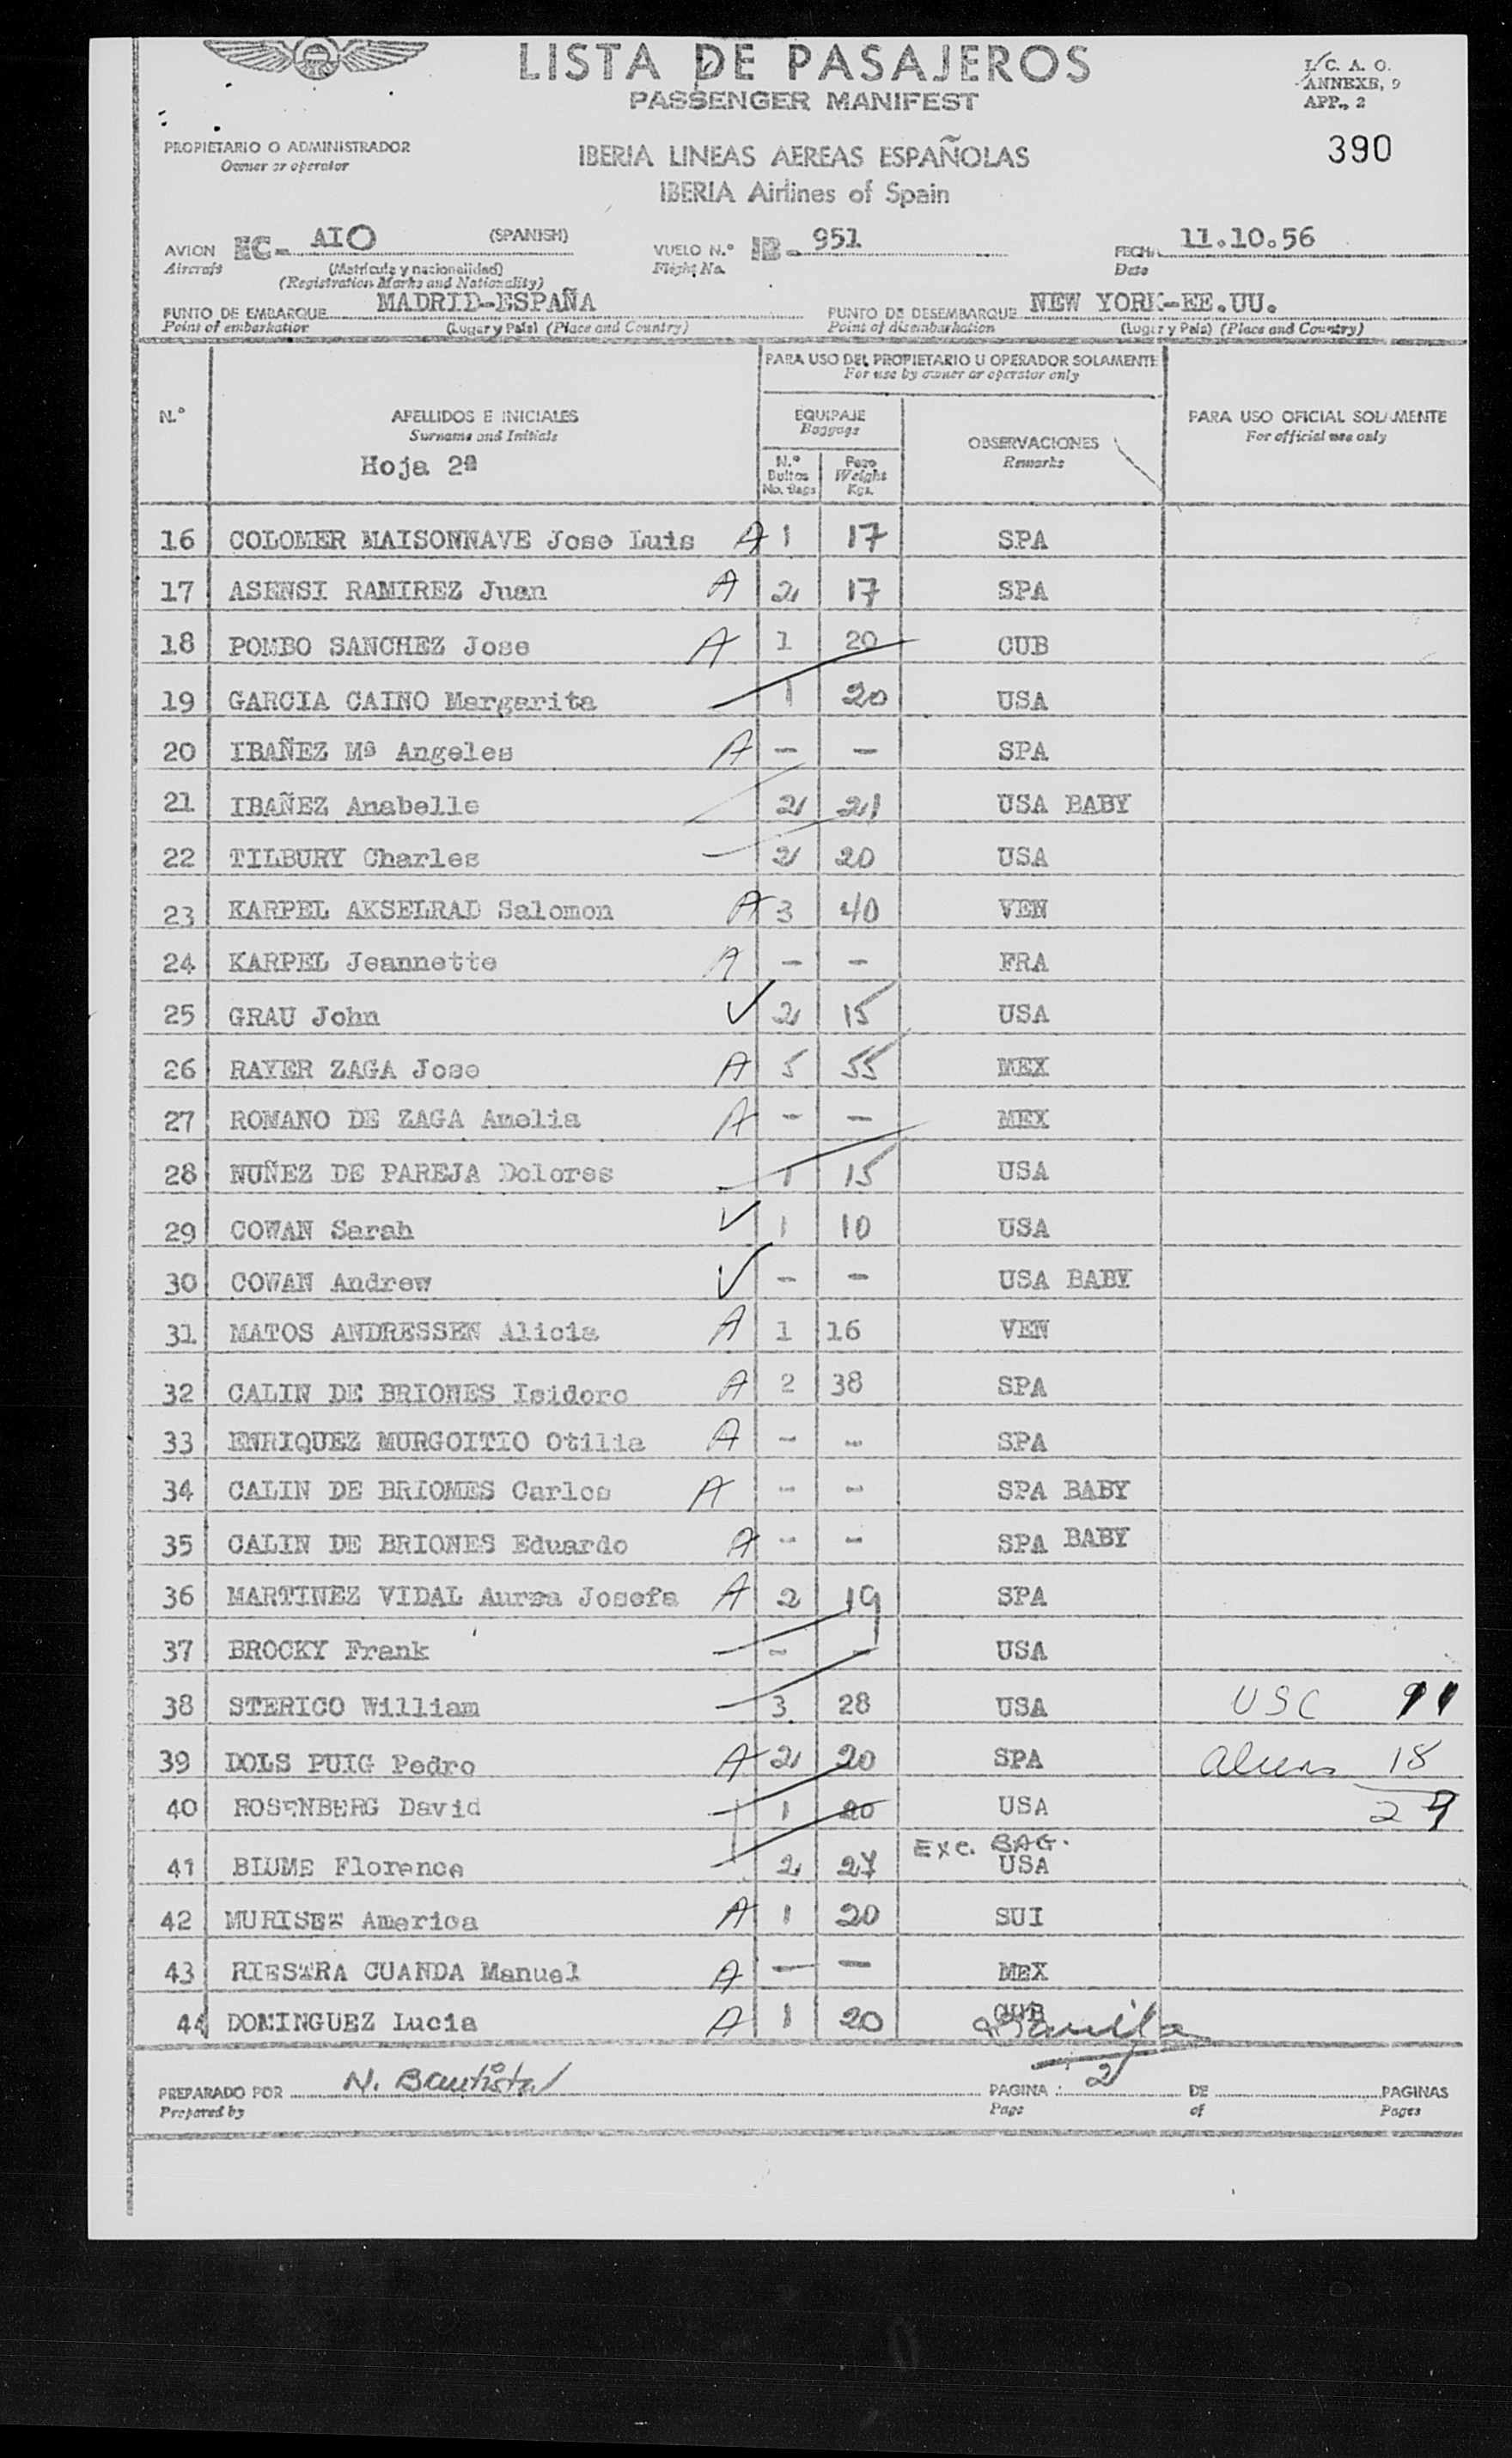 LISTA DE PASAJEROS
PASSENGER MANIFEST
I. C. A. O.
ANNEXE, 9
APP., 2
390
PROPIETARIO O ADMINISTRADOR
Owner or operator
IBERIA LINEAS AEREAS ESPAÑOLAS
IBERIA Airlines of Spain
AVION EC- AIO (SPANISH) VUELO N.º IB- 951 FECHA 11.10.56
Aircraft (Matrícula y nacionalidad) Flight No. Date
(Registration Marks and Nationality)
PUNTO DE EMBARQUE MADRID-ESPAÑA PUNTO DE DESEMBARQUE NEW YORK-EE.UU.
Point of embarkation (Lugar y País) (Place and Country) Point of disembarkation (Lugar y País) (Place and Country)
PARA USO DEL PROPIETARIO U OPERADOR SOLAMENTE
For use by owner or operator only
N.º APELLIDOS E INICIALES EQUIPAJE OBSERVACIONES PARA USO OFICIAL SOLAMENTE
Surname and Initials Baggage Remarks For official use only
Hoja 2ª
N.º Bultos No. Bags Peso Weight Kgs.
16 COLOMER MAISONNAVE Jose Luis A 1 17 SPA
17 ASENSI RAMIREZ Juan A 2 17 SPA
18 POMBO SANCHEZ Jose A 1 20 CUB
19 GARCIA CAINO Margarita 1 20 USA
20 IBAÑEZ Mª Angeles A - - SPA
21 IBAÑEZ Anabelle 2 21 USA BABY
22 TILBURY Charles 2 20 USA
23 KARPEL AKSELRAD Salomon A 3 40 VEN
24 KARPEL Jeannette A - - FRA
25 GRAU John ✓ 2 15 USA
26 RAYER ZAGA Jose A 5 55 MEX
27 ROMANO DE ZAGA Amelia A - - MEX
28 NUÑEZ DE PAREJA Dolores 1 15 USA
29 COWAN Sarah ✓ 1 10 USA
30 COWAN Andrew ✓ - - USA BABY
31 MATOS ANDRESSEN Alicia A 1 16 VEN
32 CALIN DE BRIONES Isidoro A 2 38 SPA
33 ENRIQUEZ MURGOITIO Otilia A - - SPA
34 CALIN DE BRIOMES Carlos A - - SPA BABY
35 CALIN DE BRIONES Eduardo A - - SPA BABY
36 MARTINEZ VIDAL Aurea Josefa A 2 19 SPA
37 BROCKY Frank - - USA
38 STERICO William 3 28 USA USC 11
39 DOLS PUIG Pedro A 2 20 SPA aliens 18
40 ROSENBERG David 1 20 USA 29
Exc. BAG.
41 BLUME Florence 2 27 USA
42 MURISET America A 1 20 SUI
43 RIESTRA CUANDA Manuel A - - MEX
44 DOMINGUEZ Lucia A 1 20 CUB
PREPARADO POR N. Bautista PAGINA: 2 DE PAGINAS
Prepared by Page of Pages